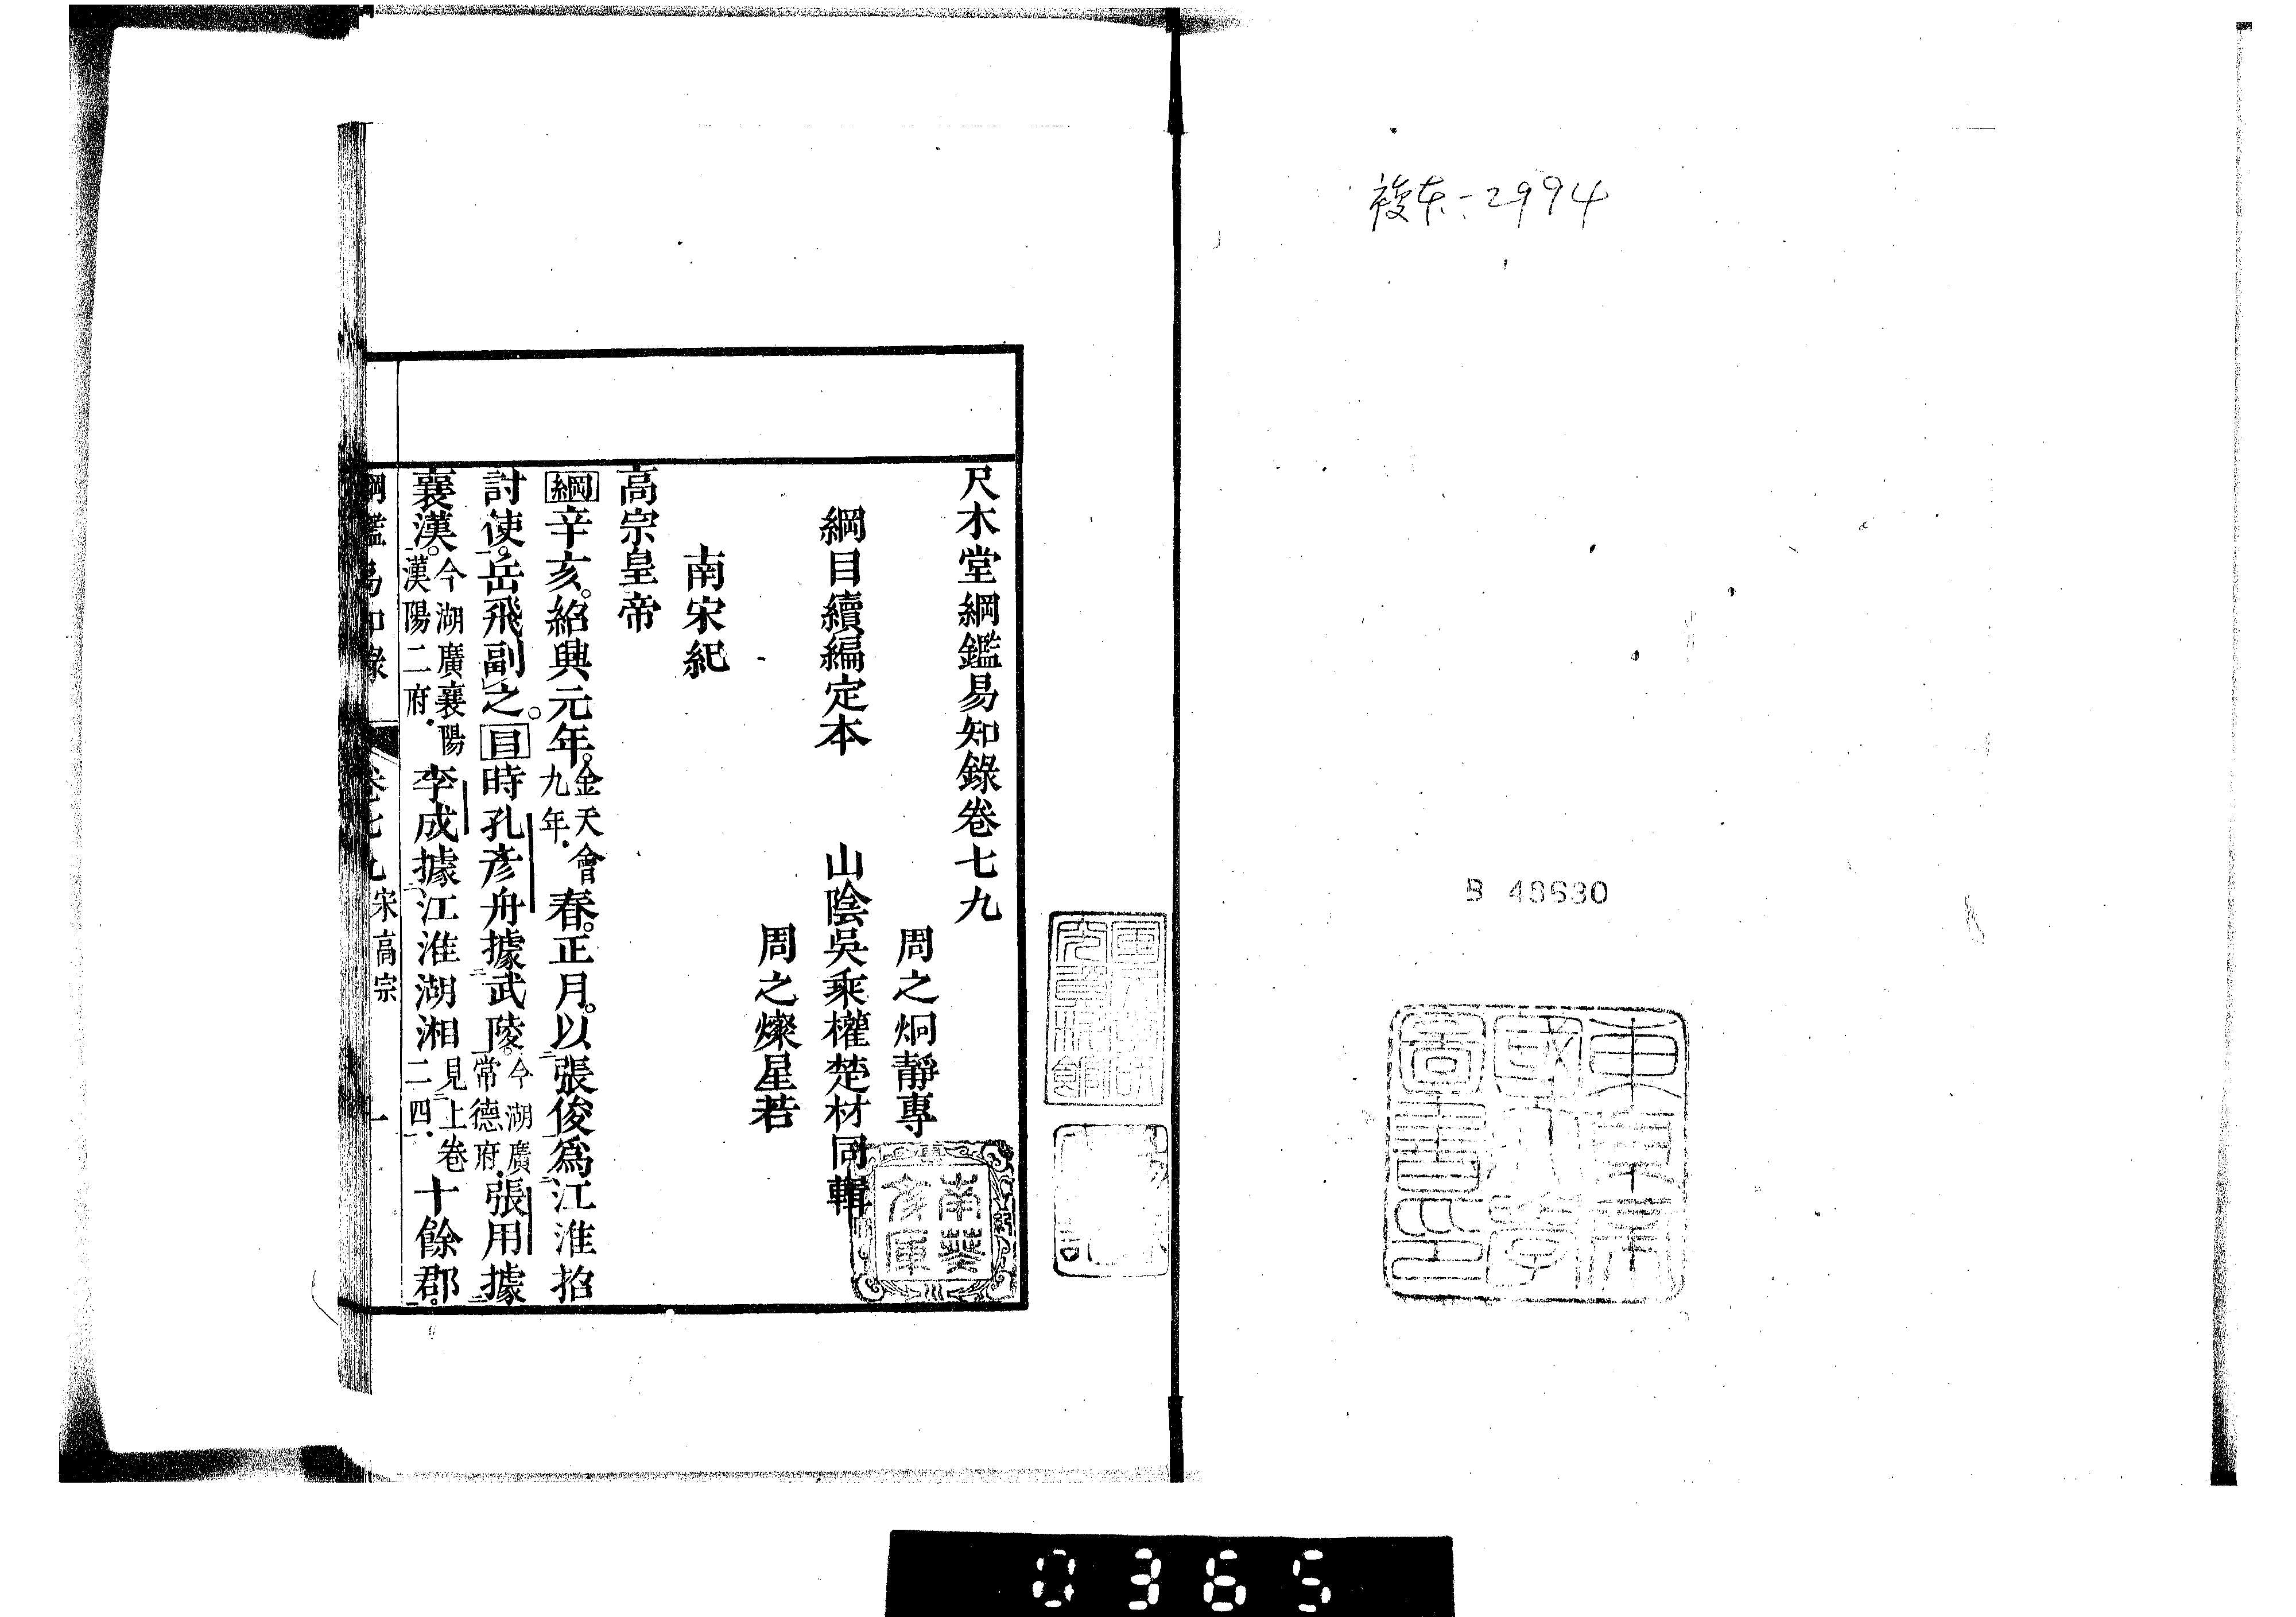 複本:2994
B 48630
東京帝
國大學
圖書印
尺木堂綱鑑易知錄卷七九
周之炯靜專
綱目續編定本 山陰吳乘權楚材同輯
周之燦星若
南葵
文庫
南宋紀
高宗皇帝
綱辛亥。紹興元年。金天會九年.春。正月。以張俊爲江淮招
討使。岳飛副之。目時孔彥舟據武陵。今湖廣常德府.張用據
襄漢。今湖廣襄陽漢陽二府.李成據江淮湖湘見上卷二四.十餘郡。
綱鑑易知錄 卷七九 宋高宗 一
0365